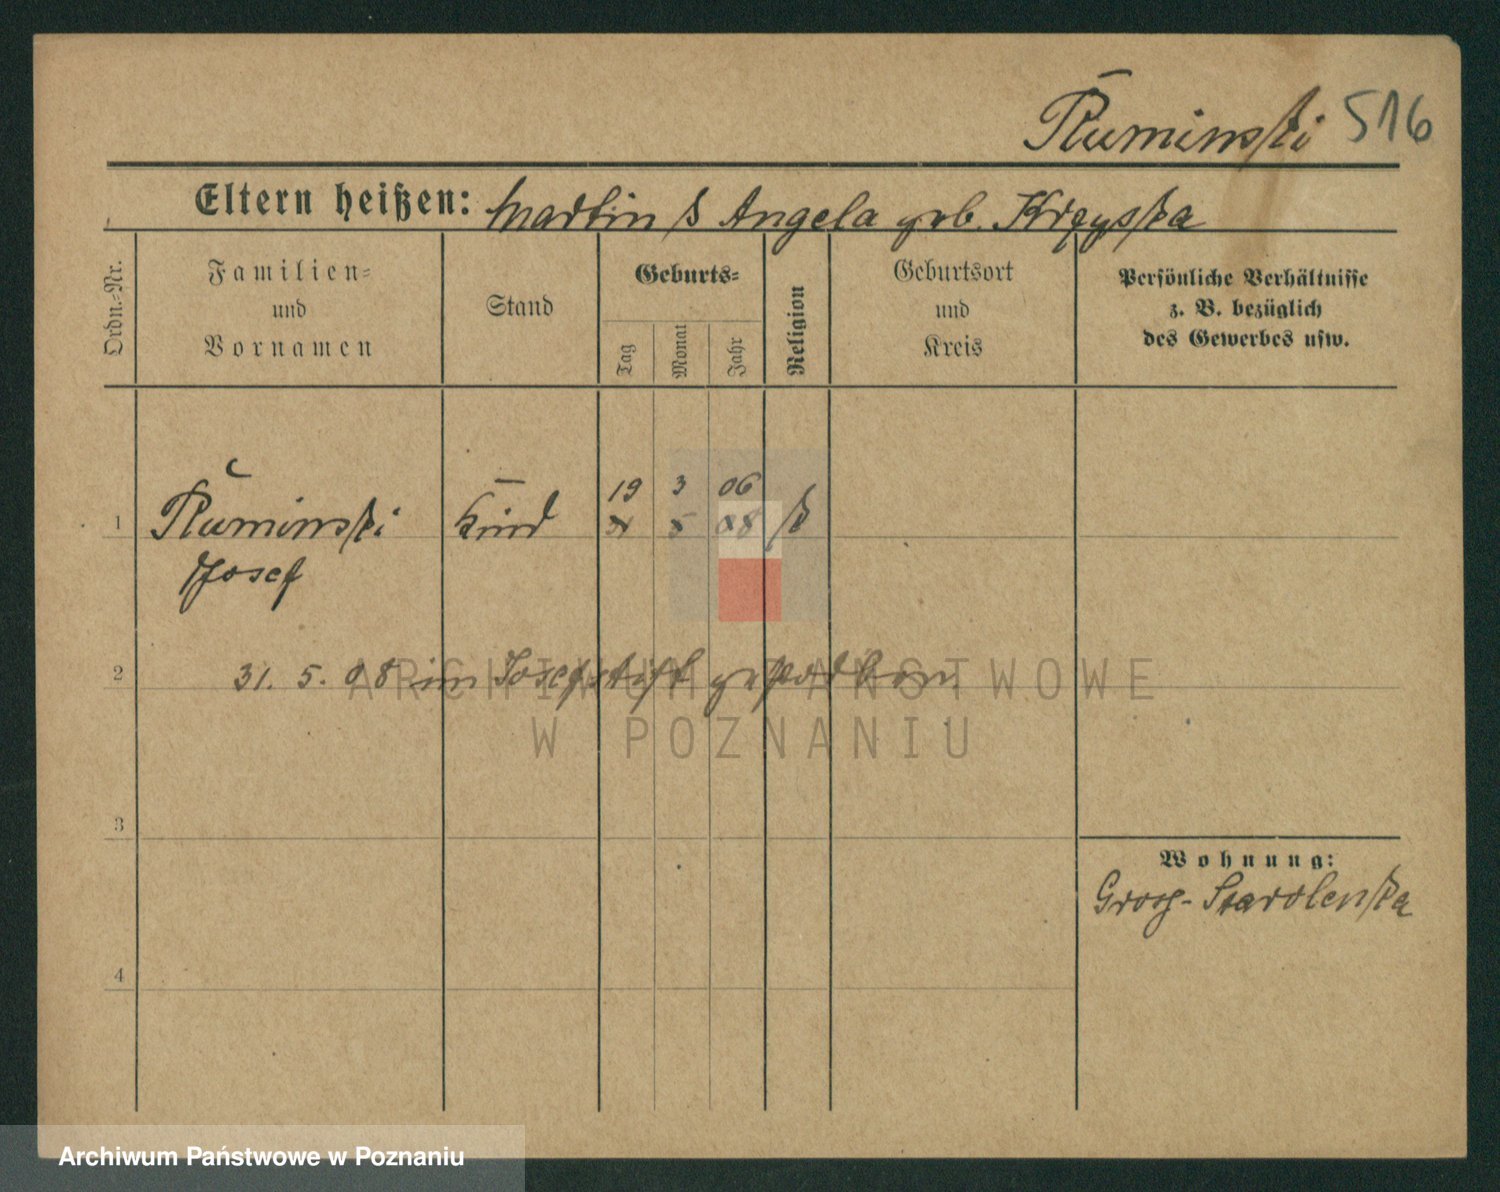 Ruminski 516
Eltern heißen: Martin & Angela geb.
Ordn.-Nr.
Familien-
und
Vornamen
Stand
Geburts-
Tag
Monat
Jahr
Religion
Geburtsort
und
Kreis
Persönliche Verhältnisse
z. B. bezüglich
des Gewerbes usw.
19 3 06
1 Ruminski Kind 31 5 08 k
Josef
2 31. 5. 08 im Josefstift gestorben.
ARCHIWUM PAŃSTWOWE
W POZNANIU
3
Wohnung:
Gross-Starolenka
4
Archiwum Państwowe w Poznaniu